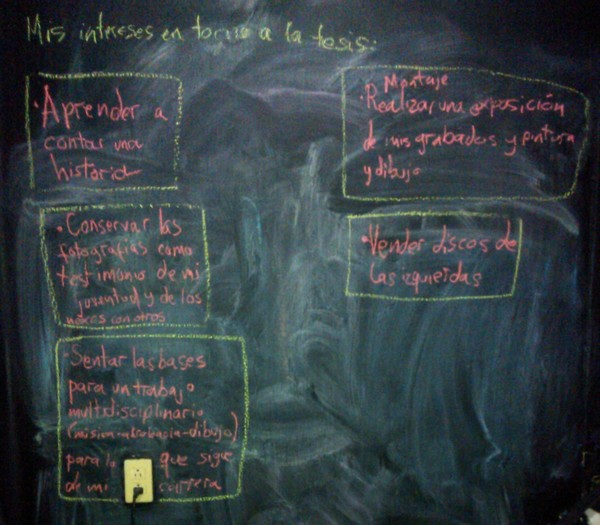 Mis intereses en torno a la tesis:
• Aprender a
contar una
historia
• Conservar las
fotografías como
testimonio de mi
juventud y de los
nexos con otros
• Sentar las bases
para un trabajo
multidisciplinario
para lo que sigue
de mi carrera
Montaje
• Realizar una exposición
de mis grabados y pintura
y dibujo
• Vender discos de
las izquierdas